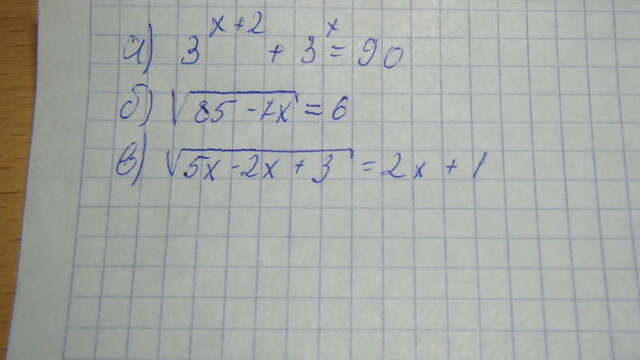 а) 3^{x+2} + 3^x = 90
б) √(85 - 7x) = 6
в) √(5x - 2x + 3) = 2x + 1